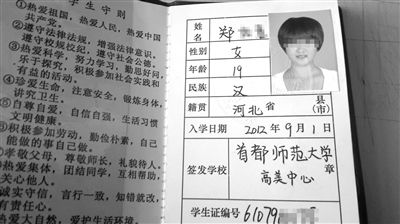 学生守则
①热爱祖国，热爱人民，热爱中国
共产党。
②遵守法律法规，增强法律意识。
遵守校规校纪，遵守社会公德。
③热爱科学，努力学习，勤思好问，
乐于探究，积极参加社会实践和
有益的活动。
④珍爱生命，注意安全，锻炼身体，
讲究卫生。
⑤自尊自爱，自信自强，生活习惯
文明健康。
⑥积极参加劳动，勤俭朴素，自己
能做的事自己做。
⑦孝敬父母，尊敬师长，礼貌待人。
热爱集体，团结同学，互相帮助，
关心他人。
诚实守信，言行一致，知错就改，
有责任心。
热爱大自然，爱护生活环境。
姓名 郑
性别 女
年龄 19
民族 汉
籍贯 河北 省 县(市)
入学日期 2012 年 9 月 1 日
签发学校 首都师范大学
高美中心 章
学生证编号 61079